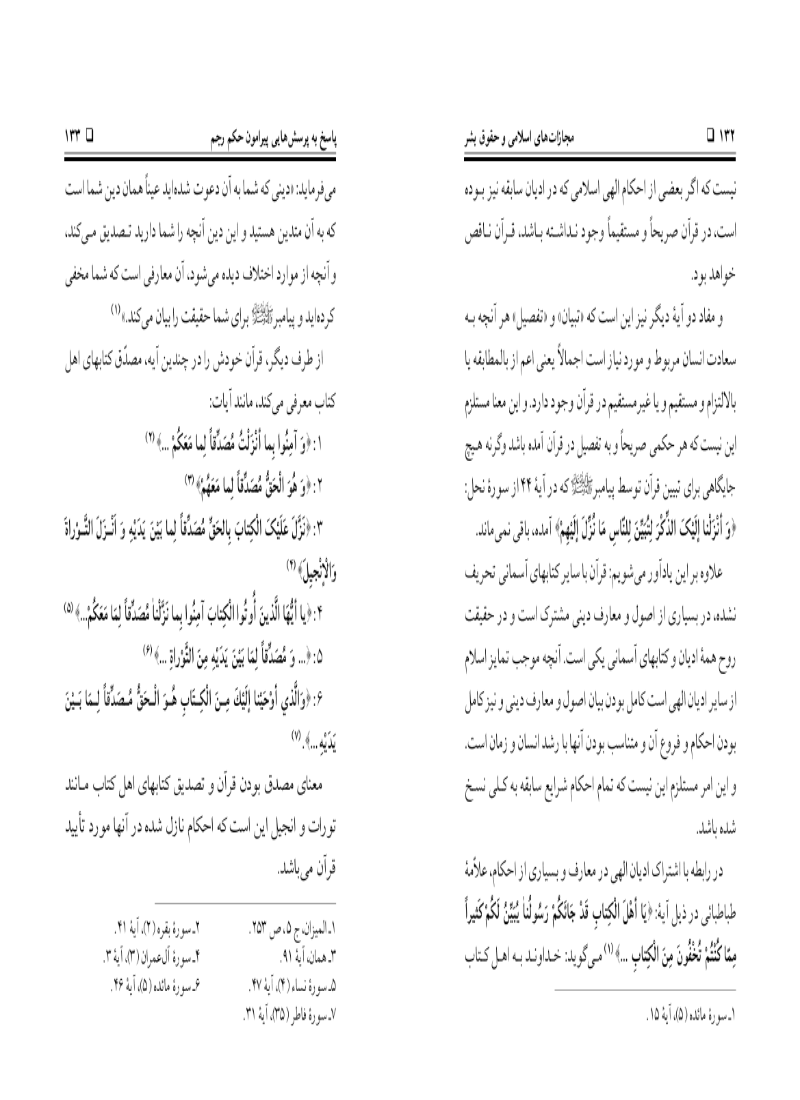 ۱۳۲ ❑ مجازات‌های اسلامی و حقوق بشر
نیست که اگر بعضی از احکام الهی اسلامی که در ادیان سابقه نیز بـوده
است، در قرآن صریحاً و مستقیماً وجود نـداشـته بـاشد، قـرآن نـاقص
خواهد بود.
و مفاد دو آیهٔ دیگر نیز این است که «تبیان» و «تفصیل» هر آنچه بـه
سعادت انسان مربوط و مورد نیاز است اجمالاً یعنی اعم از بالمطابقه یا
بالالتزام و مستقیم و یا غیر مستقیم در قرآن وجود دارد. و این معنا مستلزم
این نیست که هر حکمی صریحاً و به تفصیل در قرآن آمده باشد وگرنه هیچ
جایگاهی برای تبیین قرآن توسط پیامبرﷺ که در آیهٔ ۴۴ از سورهٔ نحل:
﴿وَ أَنْزَلْنا إلَیْکَ الذِّکْرَ لِتُبَیِّنَ لِلنَّاسِ مَا نُزِّلَ إلَیْهِمْ﴾ آمده، باقی نمی‌ماند.
علاوه بر این یادآور می‌شویم: قرآن با سایر کتابهای آسمانی تحریف
نشده، در بسیاری از اصول و معارف دینی مشترک است و در حقیقت
روح همهٔ ادیان و کتابهای آسمانی یکی است. آنچه موجب تمایز اسلام
از سایر ادیان الهی است کامل بودن بیان اصول و معارف دینی و نیز کامل
بودن احکام و فروع آن و متناسب بودن آنها با رشد انسان و زمان است.
و این امر مستلزم این نیست که تمام احکام شرایع سابقه به کـلی نسـخ
شده باشد.
در رابطه با اشتراک ادیان الهی در معارف و بسیاری از احکام، علاّمهٔ
طباطبائی در ذیل آیهٔ: ﴿یَا أهْلَ الْکِتابِ قَدْ جَائَکُمْ رَسُولُنا یُبَیِّنُ لَکُمْ کَثیراً
مِمَّا کُنْتُمْ تُخْفُونَ مِنَ الْکِتابِ ...﴾(۱) مـی‌گوید: خـداونـد بـه اهـل کـتاب
۱ـ سورهٔ مائده (۵)، آیهٔ ۱۵.
پاسخ به پرسش‌هایی پیرامون حکم رجم ❑ ۱۳۳
می‌فرماید: «دینی که شما به آن دعوت شده‌اید عیناً همان دین شما است
که به آن متدین هستید و این دین آنچه را شما دارید تـصدیق مـی‌کند،
و آنچه از موارد اختلاف دیده می‌شود، آن معارفی است که شما مخفی
کرده‌اید و پیامبرﷺ برای شما حقیقت را بیان می‌کند.»(۱)
از طرف دیگر، قرآن خودش را در چندین آیه، مصدّق کتابهای اهل
کتاب معرفی می‌کند، مانند آیات:
۱: ﴿وَ آمِنُوا بِما أَنْزَلْتُ مُصَدِّقاً لِما مَعَکُمْ ...﴾(۲)
۲: ﴿وَ هُوَ الْحَقُّ مُصَدِّقاً لِما مَعَهُمْ﴾(۳)
۳: ﴿نَزَّلَ عَلَیْکَ الْکِتابَ بِالحَقِّ مُصَدِّقاً لِما بَیْنَ یَدَیْهِ وَ أنْـزَلَ التَّـوْراةَ
وَالْإنْجیلَ﴾(۴)
۴: ﴿یا أیُّهَا الَّذینَ أُوتُوا الْکِتابَ آمِنُوا بِما نَزَّلْناٰ مُصَدِّقاً لِمَا مَعَکُمْ...﴾(۵)
۵: ﴿... وَ مُصَدِّقاً لِمَا بَیْنَ یَدَیْهِ مِنَ التَّوْراةِ ...﴾(۶)
۶: ﴿وَالَّذي أوْحَیْنا إلَیْكَ مِـنَ الْکِـتَابِ هُـوَ الْـحَقُّ مُـصَدِّقاً لِـمَا بَـیْنَ
یَدَیْهِ...﴾.(۷)
معنای مصدق بودن قرآن و تصدیق کتابهای اهل کتاب مـانند
تورات و انجیل این است که احکام نازل شده در آنها مورد تأیید
قرآن می‌باشد.
۱ـ المیزان، ج ۵، ص ۲۵۳. ۲ـ سورهٔ بقره (۲)، آیهٔ ۴۱.
۳ـ همان، آیهٔ ۹۱. ۴ـ سورهٔ آل‌عمران (۳)، آیهٔ ۳.
۵ـ سورهٔ نساء (۴)، آیهٔ ۴۷. ۶ـ سورهٔ مائده (۵)، آیهٔ ۴۶.
۷ـ سورهٔ فاطر (۳۵)، آیهٔ ۳۱.